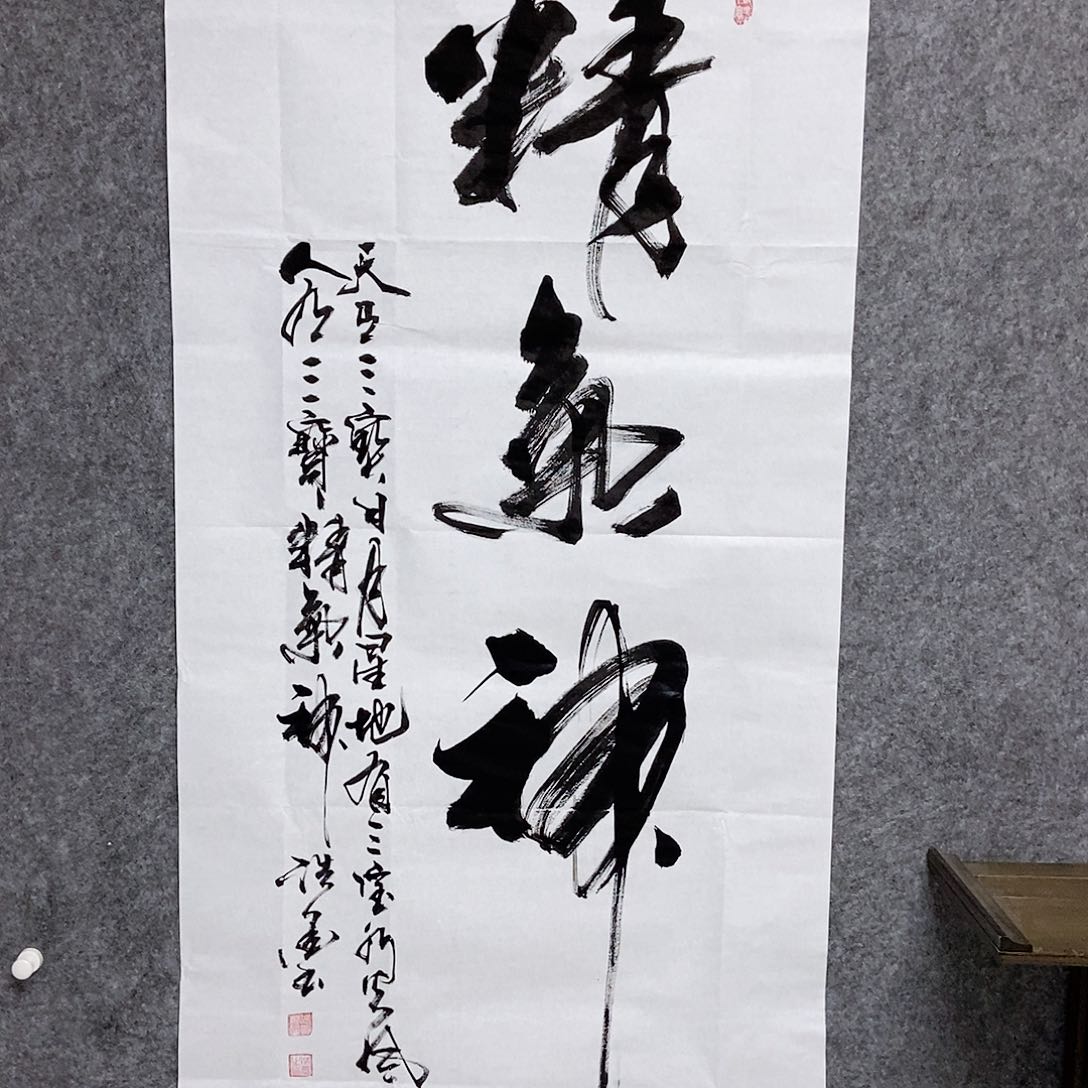 精氣神
天有三寶日月星地有三寶水火風
人有三寶精氣神
墨书